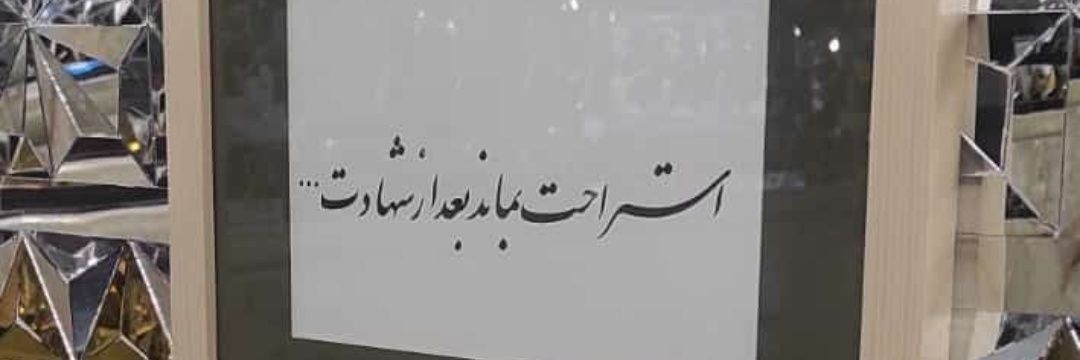 استراحت بماند بعد از شهادت...